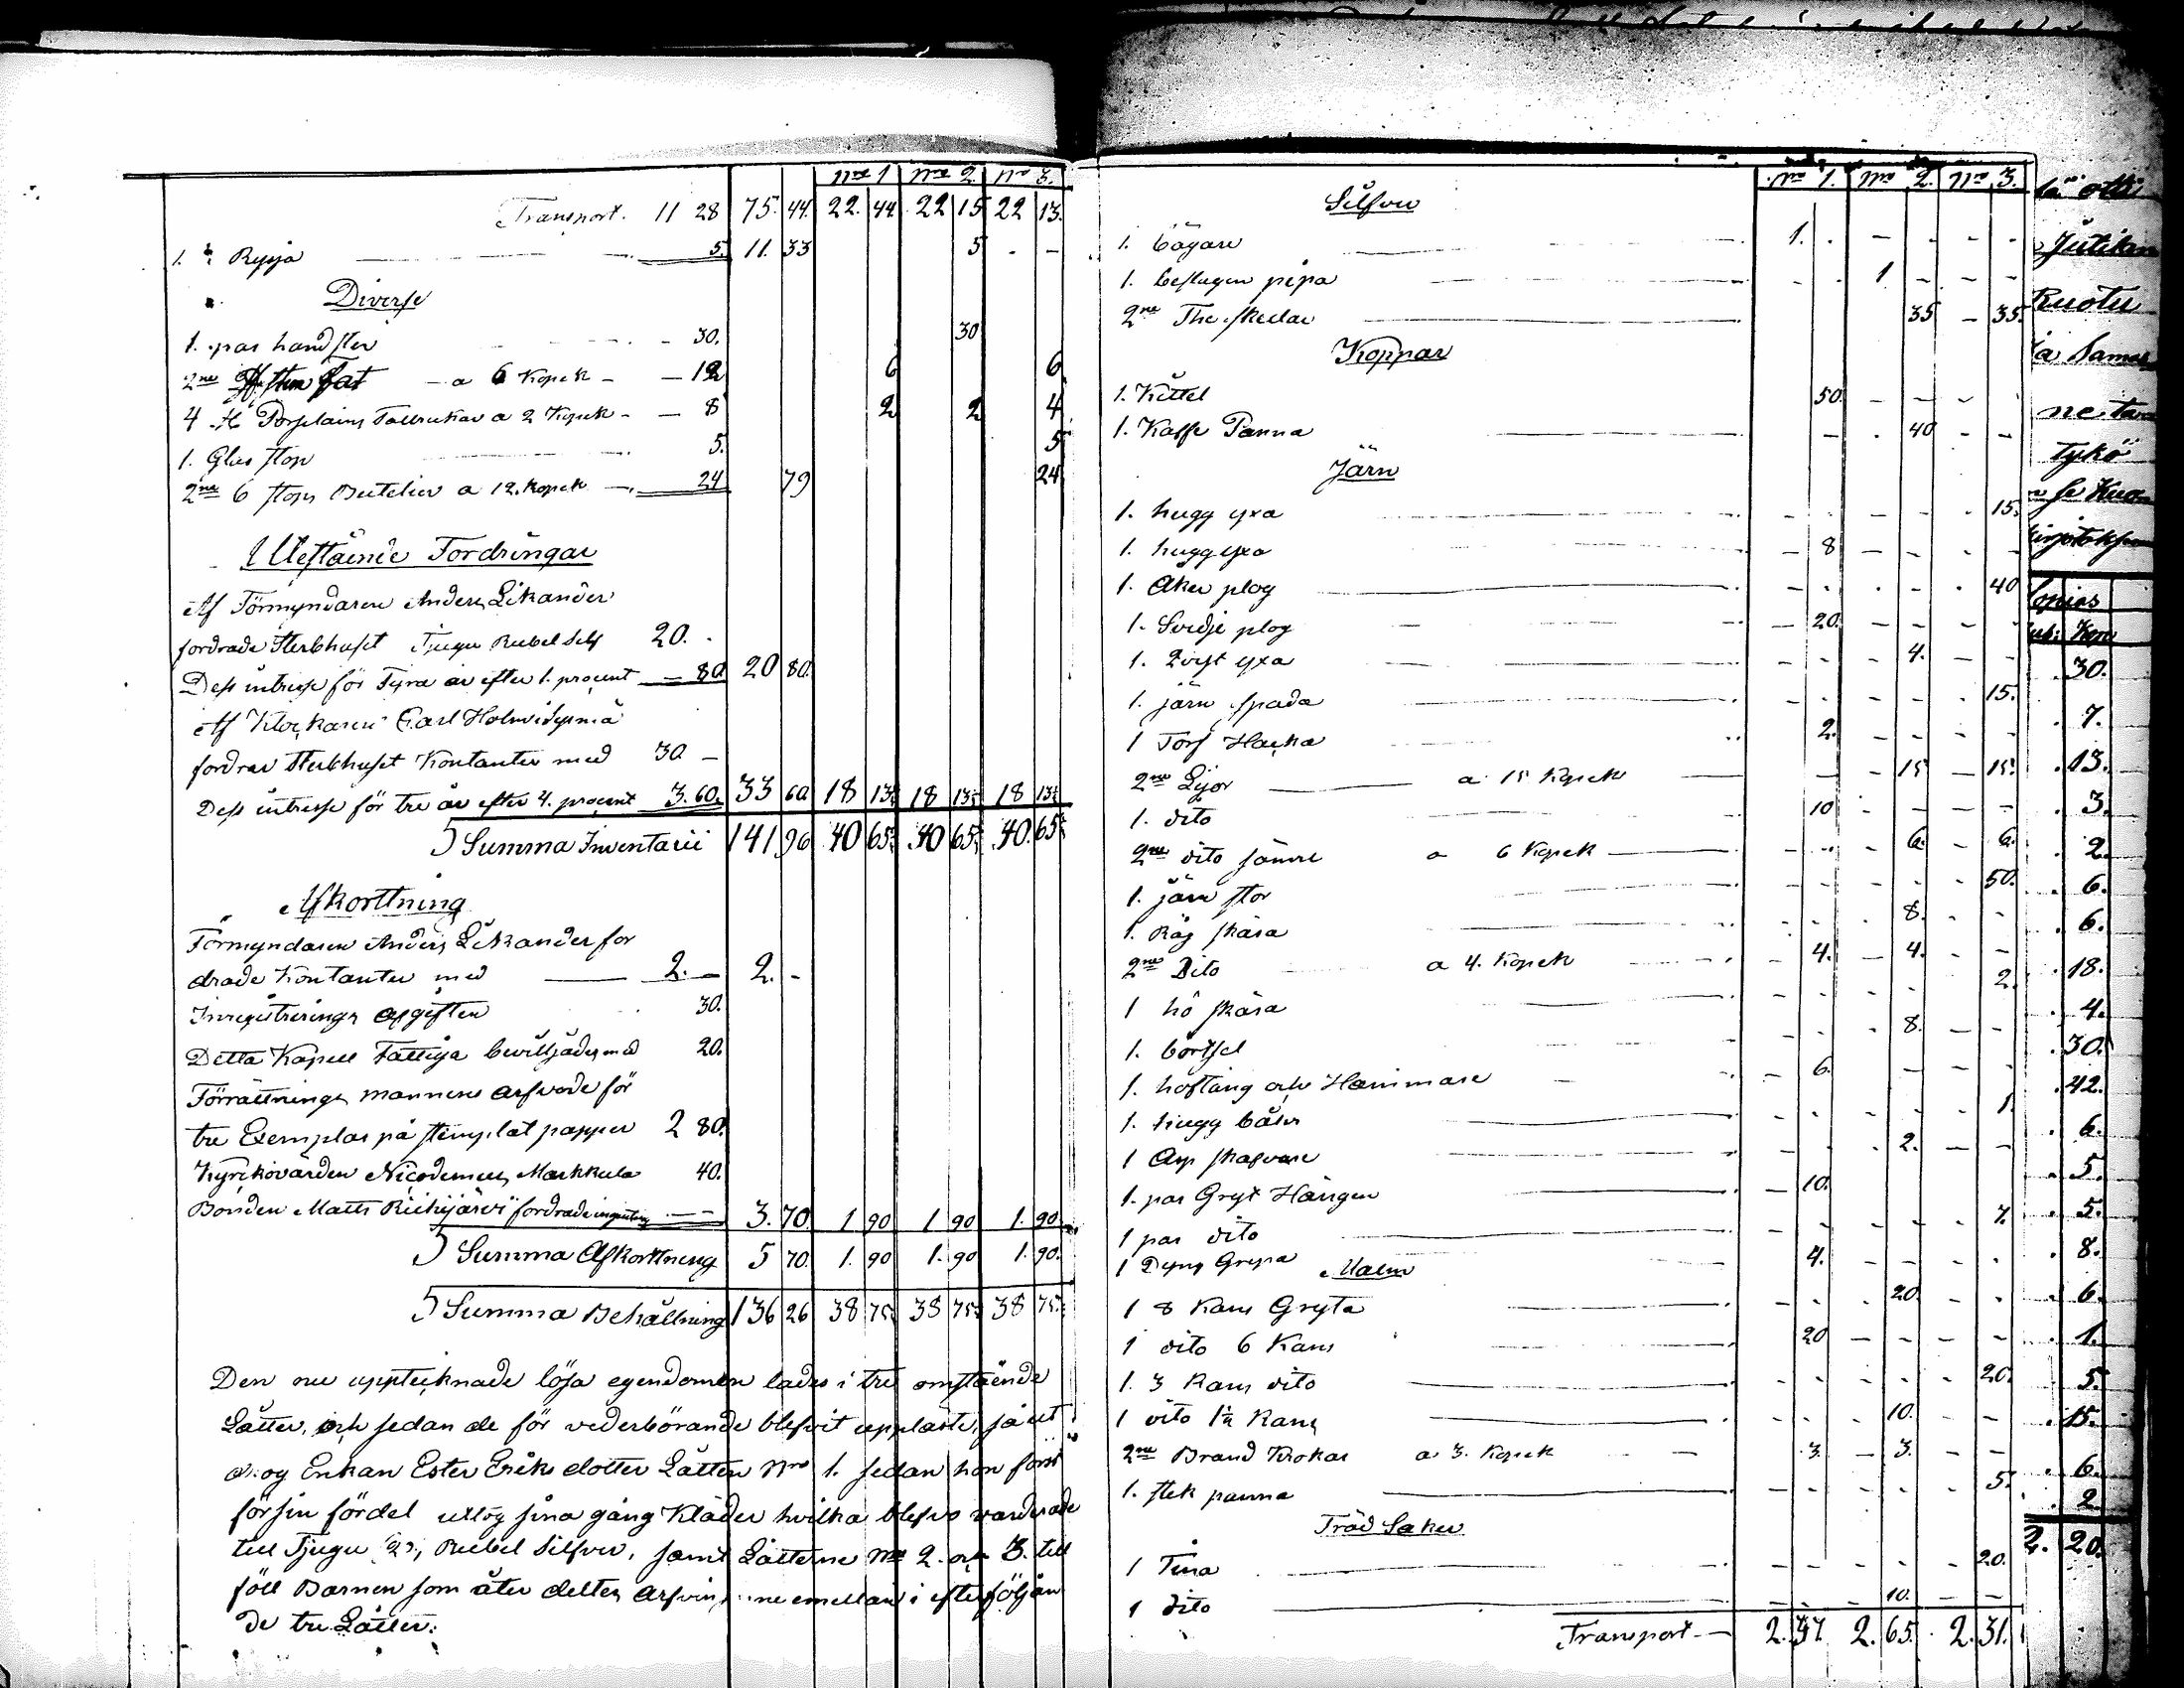 1 till 2 till 3 till
Transport. 11 28 75. 44. 22. 44 22 15 22 13.
1. Ryssja 5. 11. 33 5 - -
Diverse
1. par handster 30. 30
2ne Fat a 6 Kopek 12 6 6
4 Porslains Tallrickar a 2 Kopek 8 2 2 4
1. Glas stop 5. 5
2ne 6 stops Buteljer a 12. kopek 24 79 24
Utestående Fordringar
Af Förmyndaren Anders Likander
fordrade Sterbhuset Tjugu Rubel Self 20.
Dess intresse för Fyra år efter 1. procent 80 20 80.
Af Klockaren Carl Holm
fordrar Sterbhuset Kontanter med 30 -
Dess intresse för tre år efter 4. procent 3. 60. 33 60 18 13⅓ 18 13⅓ 18 13⅓
Summa Inventarii 141 96 40 65⅓ 40 65⅓ 40. 65⅓
Afkorttning
Förmyndaren Anders Likander for
drade Kontanter med 2. - 2. -
Inregistrerings afgiften 30.
Detta Kapell Fattiga beviljades med 20.
Förrättnings mannens arfvode för
tre Exemplar på stemplat papper 2 80.
Kyrkovärden Nicodemus Markkula 40.
Bonden Matts Riihijärvi fordrade ingenting - - 3. 70 1 90 1 90 1. 90
Summa Afkorttning 5 70. 1. 90 1. 90 1. 90.
Summa Behållning 136 26 38 75⅓ 38 75⅓ 38 75⅓
Den nu upptecknade lösa egendomen lades i tre omstående
Låtter, och sedan de för vederbörande blefvit upplåste, så ut
drog Enkan Ester Eriks dotter Låtten Nro 1. sedan hon först
för sin fördel uttog sina gång Kläder hvilka blefvo varderade
till Tjugu 20, Rubel Silfver, samt Låtterne No 2. och 3. till
föll Barnen som åter deltes arfvingarne emellan i efterföljan
de tre Låtter:
1. till 2. till 3.
Silfver
1. bägare 1. . - - - -
1. beslagen pipa - - 1 - - -
2ne The skedar 35 - 35.
Koppar
1. Kittel 50. - - -
1. Kaffe Panna - . 40 - -
Järn
1. hugg yxa - - - - . 15.
1. hugg yxa - 8 - - - -
1. Åker plog - . . - . 40
1. Svedje plog - 20. - - - -
1. Qvist yxa - - - 4. - -
1. järn spada - - - - - 15.
1 Torf Hacka 2. - - - -
2ne Lijor a 15 Kopek - - 15 - 15.
1. dito 10 - - - -
2ne dito sämre a 6 Kopek - - - 6. - 6.
1. järn stör - - - - - 50.
1. Råg skära - - - 8. - -
2ne Dito a 4. Kopek - 4. - 4. - -
1 hö skära - - - - - 2.
1. bortsel - - - 8. - -
1. hoftång och Hammare - 6. - - - -
1. hugg - - - - - 1.
1 - - - 2. - -
1. par Gryt Hängen - 10.
1 par dito - - - - - 7.
1 Dyng Grepa 4.
Malm
1 8 Kans Gryta - - . 20 - .
1 dito 6 Kans 20 - - - -
1. 3 Kans dito - - - - - 20.
1 dito 1½ Kans - - - 10. - -
2ne Brand Krokar a 3. Kopek 3 - 3. - -
1. stek panna - - - - - 5.
Träd Saker
1 Tina - - - - - 20.
1 dito - - - 10. - -
Transport 2. 37. 2. 65. 2. 31.
otti
Ruotu
ne
tykö
30.
7.
13.
3.
2.
6.
6.
18.
4.
30.
42.
6.
5.
5.
8.
6.
1.
5.
15.
6.
2
2. 20.